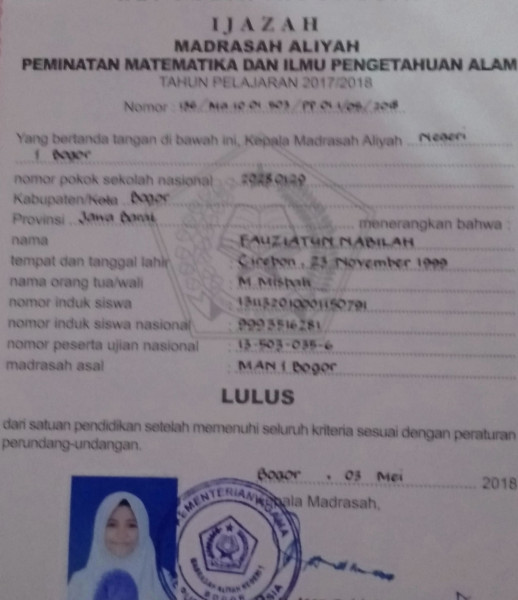 IJAZAH
MADRASAH ALIYAH
PEMINATAN MATEMATIKA DAN ILMU PENGETAHUAN ALAM
TAHUN PELAJARAN 2017/2018
Nomor :
Yang bertanda tangan di bawah ini, Kepala Madrasah Aliyah Negeri
1 Bogor
nomor pokok sekolah nasional :
Kabupaten/Kota Bogor
Provinsi Jawa Barat menerangkan bahwa :
nama : FAUZIATUN NABILAH
tempat dan tanggal lahir : Cirebon, 23 November 1999
nama orang tua/wali : M Misbah
nomor induk siswa : 131132010001150791
nomor induk siswa nasional : 9993516281
nomor peserta ujian nasional : 13-503-035-6
madrasah asal : MAN 1 Bogor
LULUS
dari satuan pendidikan setelah memenuhi seluruh kriteria sesuai dengan peraturan
perundang-undangan.
Bogor, 03 Mei 2018
Kepala Madrasah,
KEMENTERIAN AGAMA
BOGOR